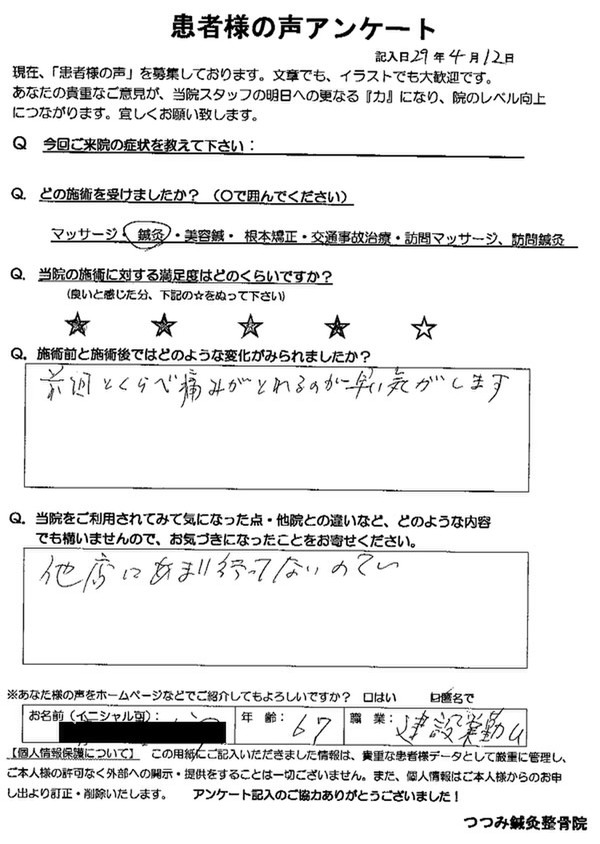 患者様の声アンケート
記入日29年4月12日
現在、「患者様の声」を募集しております。文章でも、イラストでも大歓迎です。
あなたの貴重なご意見が、当院スタッフの明日への更なる『力』になり、院のレベル向上
につながります。宜しくお願い致します。
Q 今回ご来院の症状を教えて下さい：
Q. どの施術を受けましたか？（〇で囲んでください）
マッサージ・鍼灸・美容鍼・根本矯正・交通事故治療・訪問マッサージ、訪問鍼灸
Q. 当院の施術に対する満足度はどのくらいですか？
(良いと感じた分、下記の☆をぬって下さい)
★ ★ ★ ★ ☆
Q. 施術前と施術後ではどのような変化がみられましたか？
前回とくらべ痛みがとれるのが早い気がします
Q. 当院をご利用されてみて気になった点・他院との違いなど、どのような内容
でも構いませんので、お気づきになったことをお寄せください。
他店にあまり行ってないので
※あなた様の声をホームページなどでご紹介してもよろしいですか？ 口はい 匿名で
お名前（イニシャル可）： 年 齢： 67 職 業： 建設業勤ム
【個人情報保護について】 この用紙にご記入いただきました情報は、貴重な患者様データとして厳重に管理し、
ご本人様の許可なく外部への開示・提供をすることは一切ございません。また、個人情報はご本人様からのお申
し出より訂正・削除いたします。 アンケート記入のご協力ありがとうございました！
つつみ鍼灸整骨院